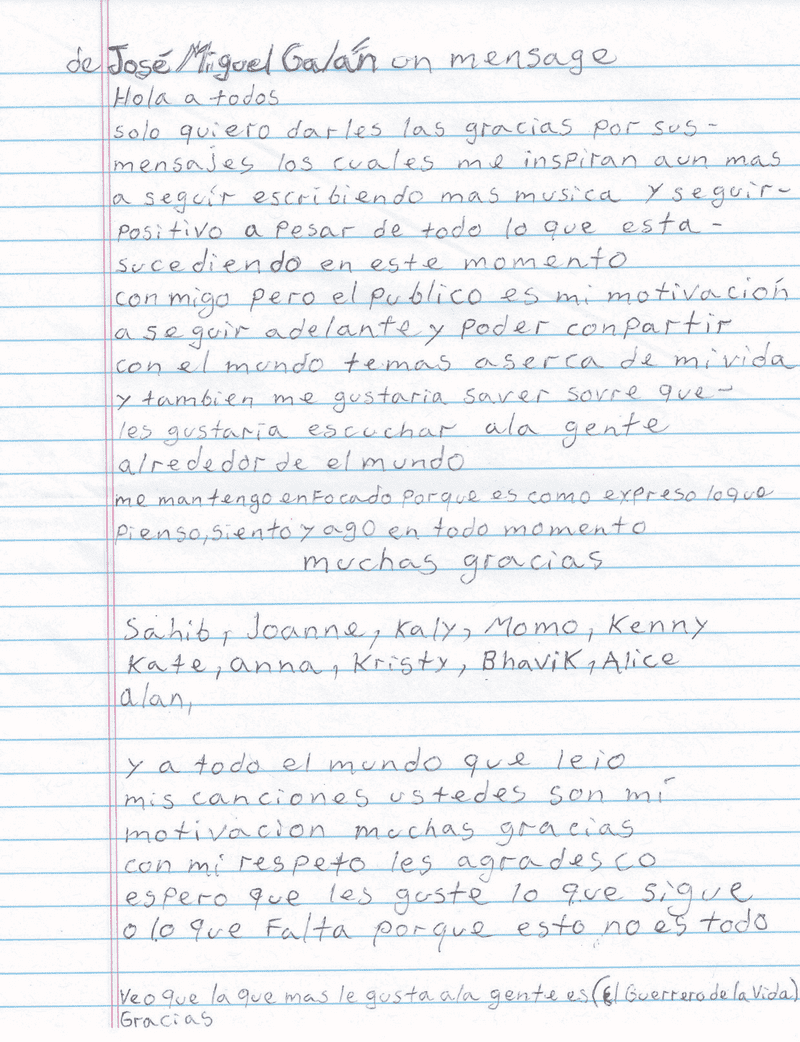 de José Miguel Galán un mensage
Hola a todos
solo quiero darles las gracias por sus-
mensajes los cuales me inspiran aun mas
a seguir escribiendo mas musica y seguir-
positivo a pesar de todo lo que esta-
sucediendo en este momento
conmigo pero el publico es mi motivación
a seguir adelante y poder conpartir
con el mundo temas aserca de mi vida
y tambien me gustaria saver sovre que-
les gustaria escuchar ala gente
alrededor de el mundo
me mantengo enfocado porque es como expreso lo que
pienso, siento y ago en todo momento
muchas gracias
Sahib, Joanne, Kaly, Momo, Kenny
Kate, anna, Kristy, Bhavik, Alice
alan,
y a todo el mundo que leio
mis canciones ustedes son mí
motivacion muchas gracias
con mi respeto les agradesco
espero que les guste lo que sigue
o lo que falta porque esto no es todo
Veo que la que mas le gusta ala gente es (El Guerrero de la Vida)
Gracias